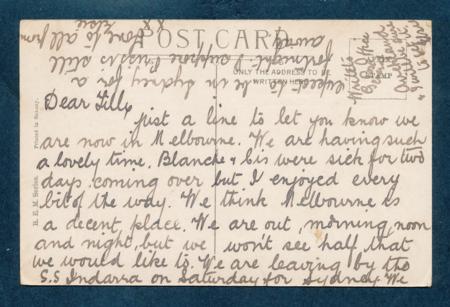 POST CARD
ONLY THE ADDRESS TO BE
WRITTEN HERE
Printed in Saxony.
B. E. M. Series.
Dear Tilly
just a line to let you know we
are now in Melbourne. We are having such
a lovely time. Blanche & Cis were sick for two
days coming over but I enjoyed every
bit of the way. We think Melbourne is
a decent place. We are out, morning, noon
and night, but we won't see half that
we would like to. We are leaving by the
S.S Indarra on Saturday for Sydney. We
expect to be in Sydney for a
fortnight. I suppose Perc is still
away.
love to all from
Elsie
x x
Written